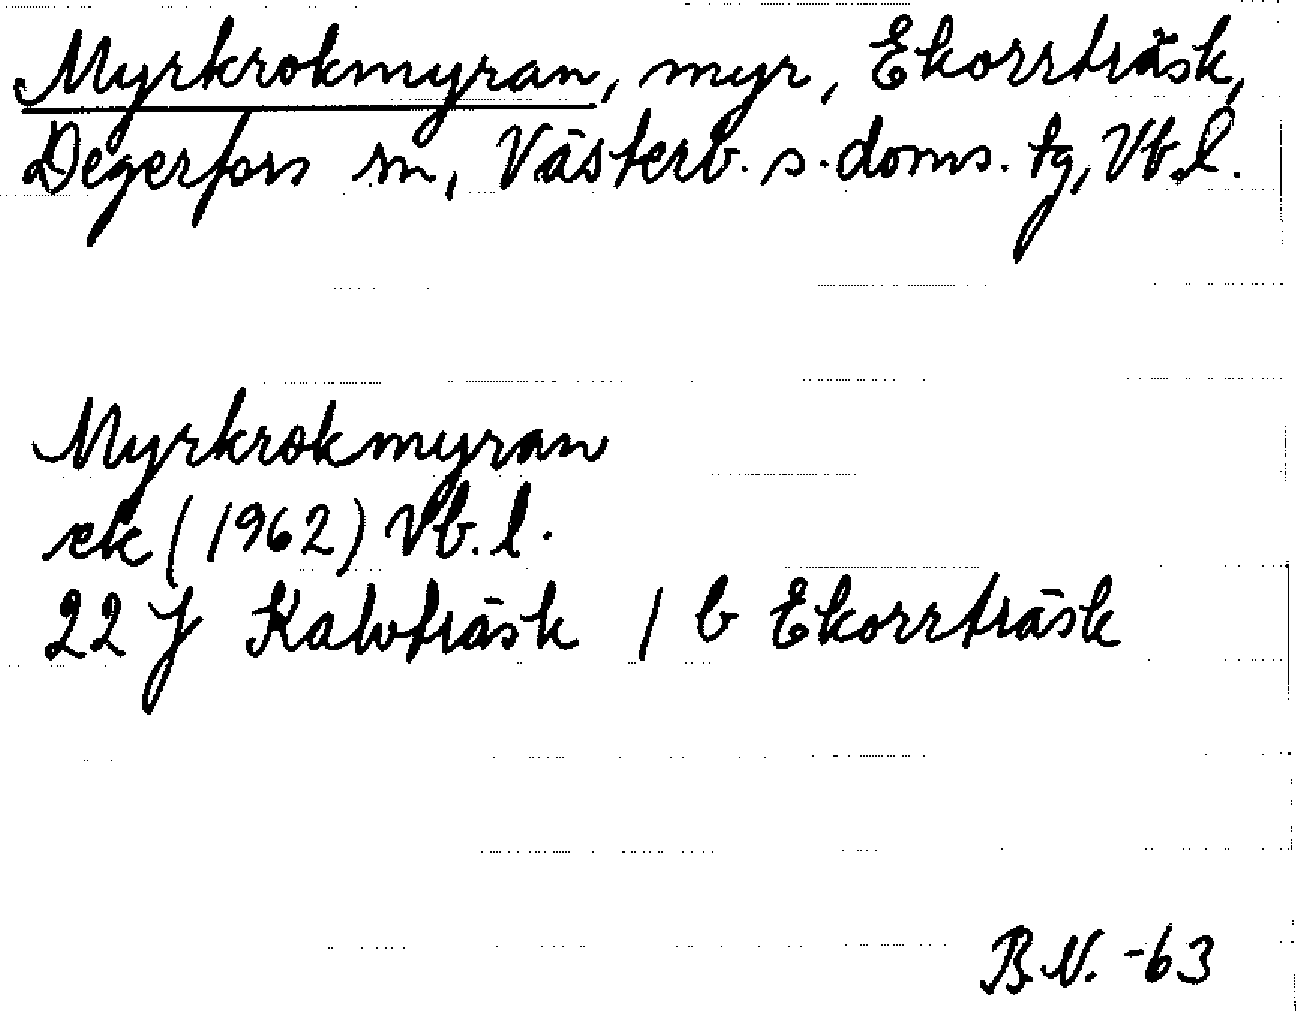 Myrkrokmyran, myr, Ekorrträsk,
Degerfors sn, Västerb. s. doms. tg, Vb. l.
Myrkrokmyran
ek (1962) Vb. l.
22 J Kalvträsk / b Ekorrträsk
B.N. -63